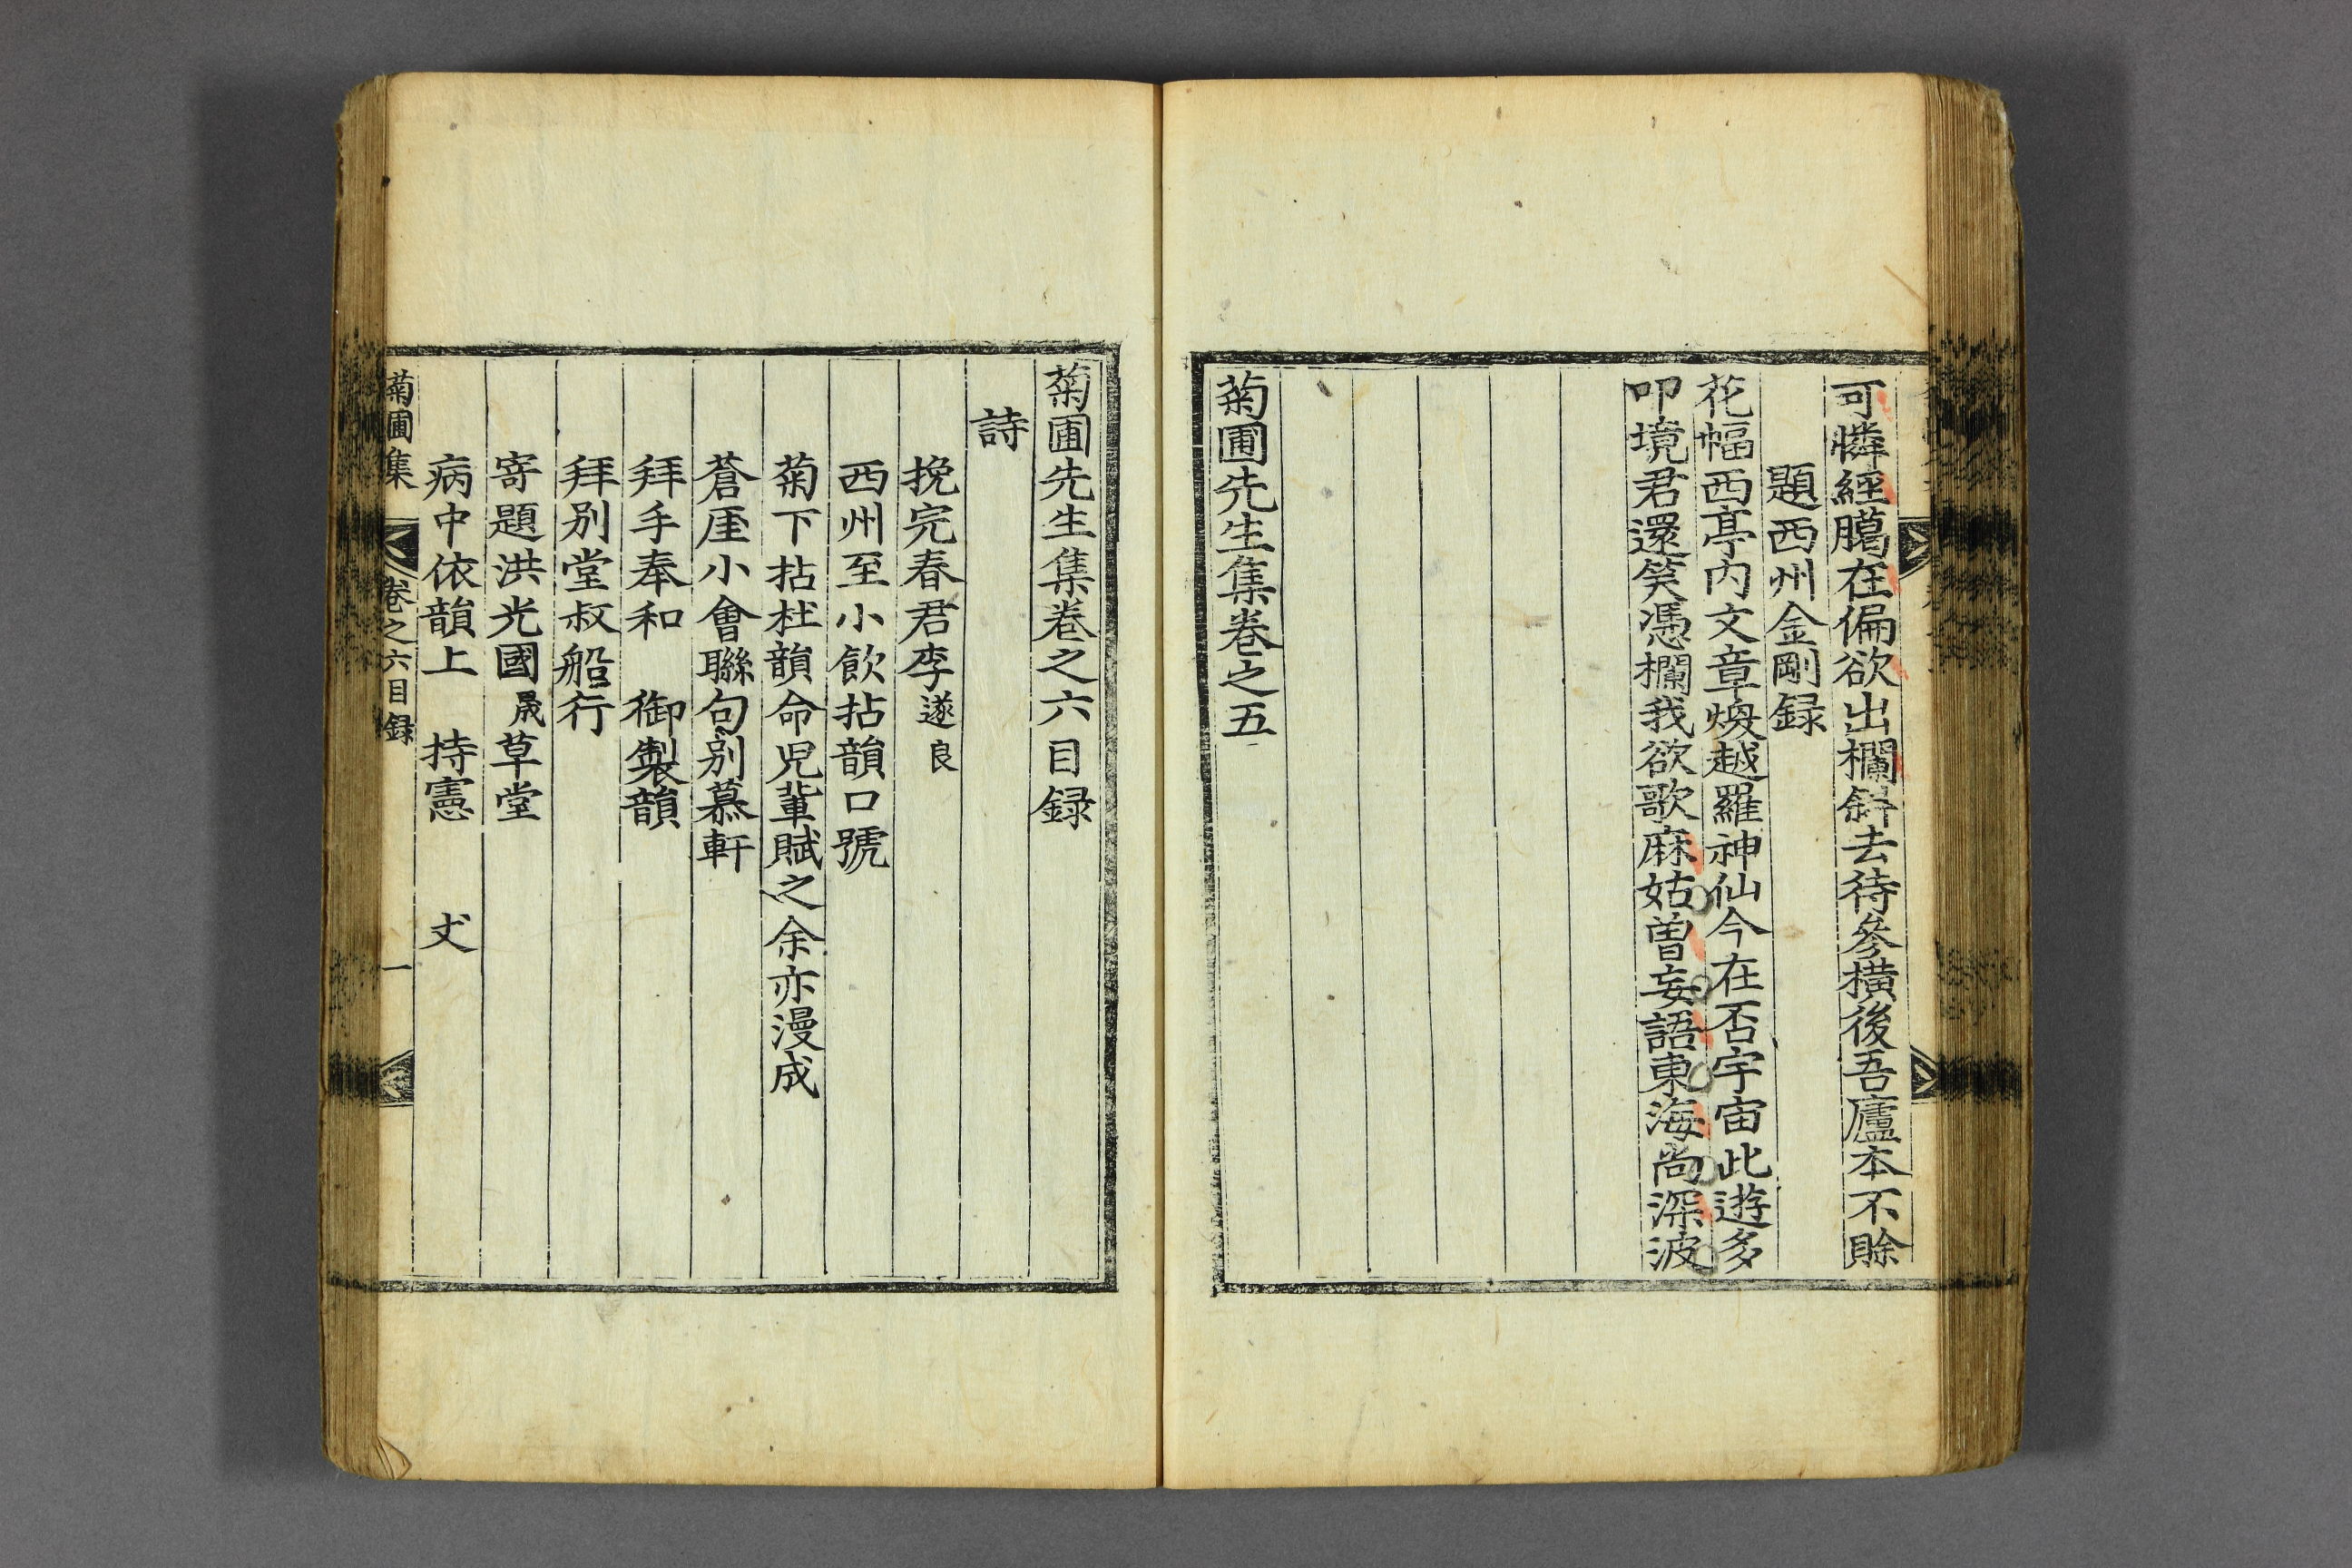 可憐經臈在偏欲出欄斜去待參橫後吾廬本不賖
題西州金剛録
花幅西亭內文章煥越羅神仙今在否宇宙此遊多
叩境君還笑憑欄我欲歌麻姑曽妄語東海尚深波
菊圃先生集卷之五
菊圃先生集卷之六目録
詩
挽完春君李遂良
西州至小飮拈韻口號
菊下拈杜韻命児軰賦之余亦漫成
蒼厓小會聯句別慕軒
拜手奉和 御製韻
拜別堂叔船行
寄題洪光國晟草堂
病中依韻上 持憲 丈
菊圃集 卷之六目録 一